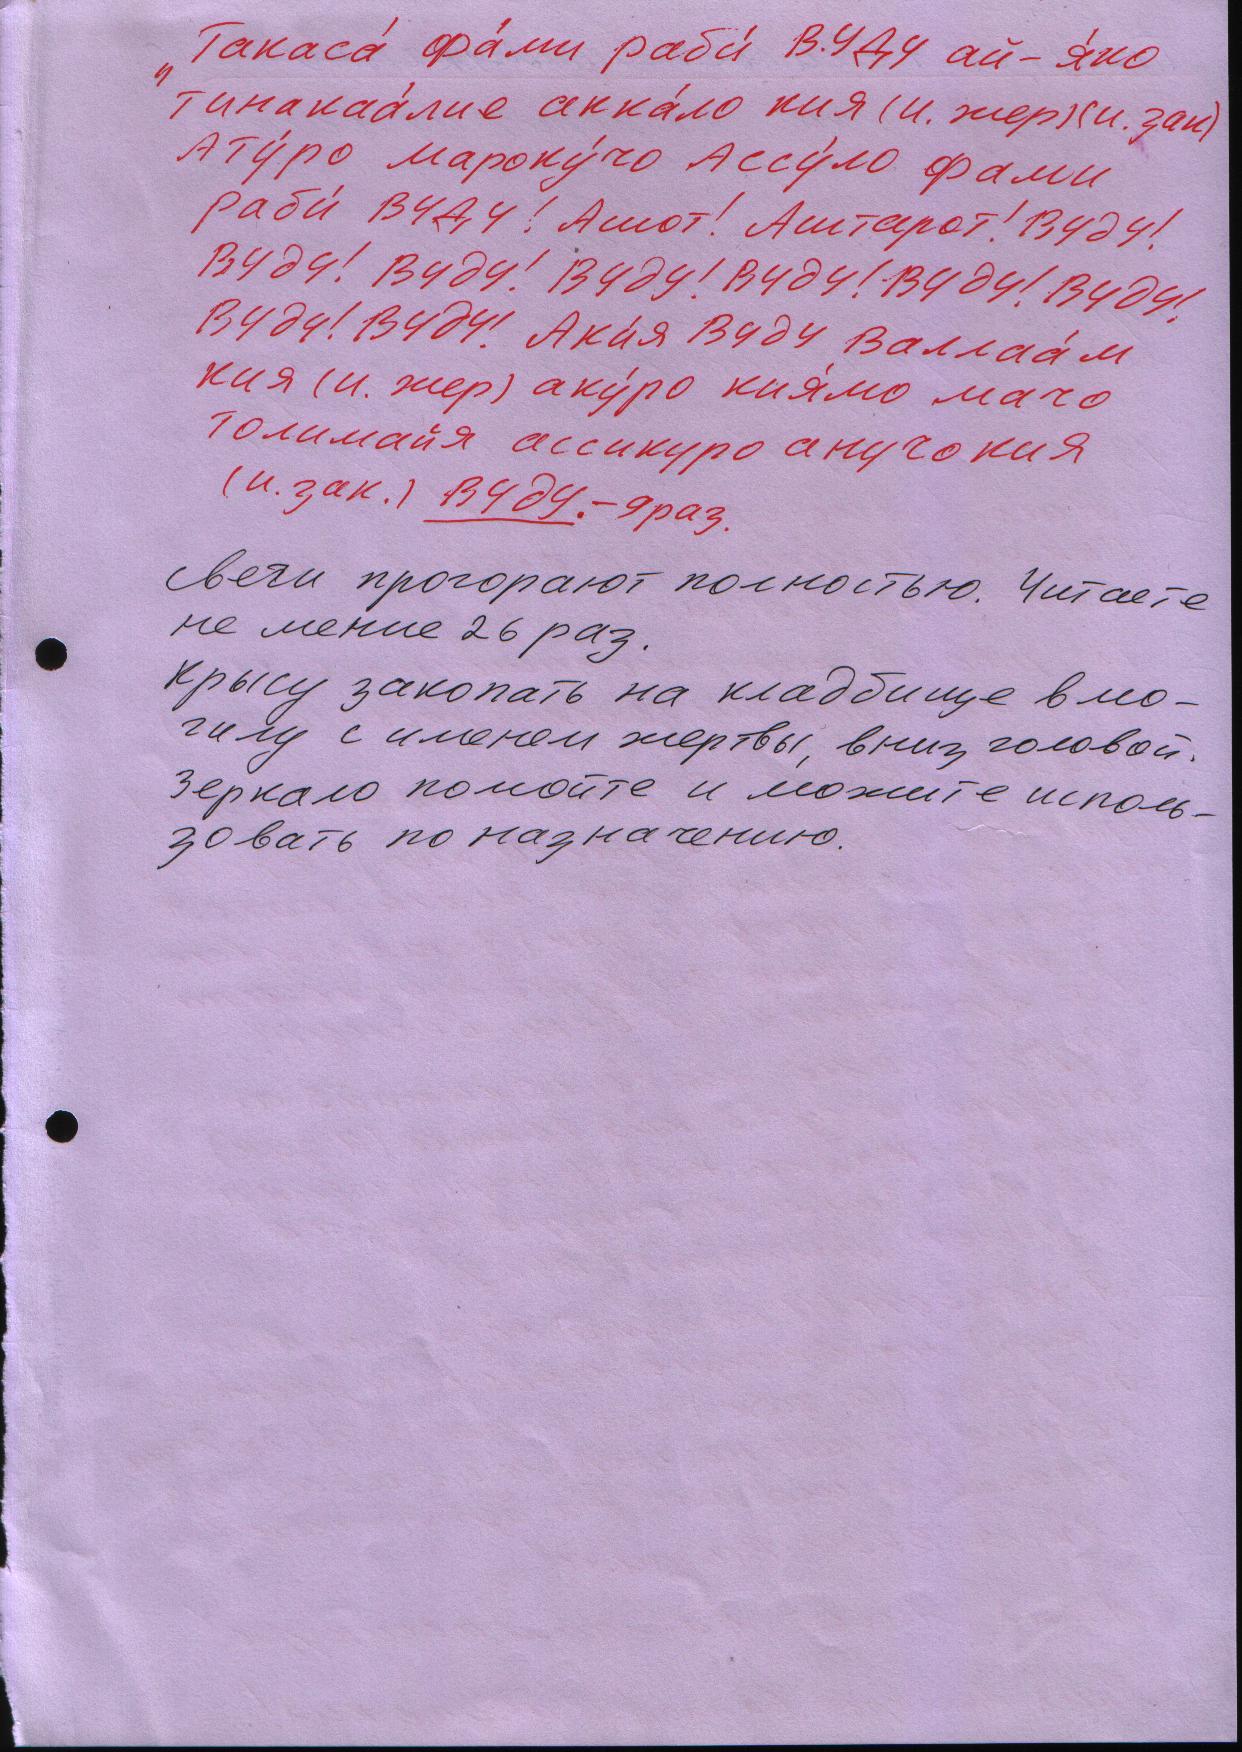 „Такаса́ фа́ми раби́ ВУДУ ай-я́ко
тинакаа́лие акка́ло кия (и. жер)(и. зак)
Ату́ро мароку́чо Ассу́ло фами
раби́ ВУДУ! Ашот! Аштарот! Вуду!
Вуду! Вуду! Вуду! Вуду! Вуду! Вуду!
Вуду! Вуду! Аки́я Вуду Валлаа́м
кия (и. жер) аку́ро кия́мо мачо
толимайя ассикуро анучо кия
(и. зак.) Вуду. – 9 раз.
Свечи прогорают полностью. Читаете
не мение 26 раз.
Крысу закопать на кладбище в мо-
гилу с именем жертвы, вниз головой.
Зеркало помойте и можите исполь-
зовать по назначению.